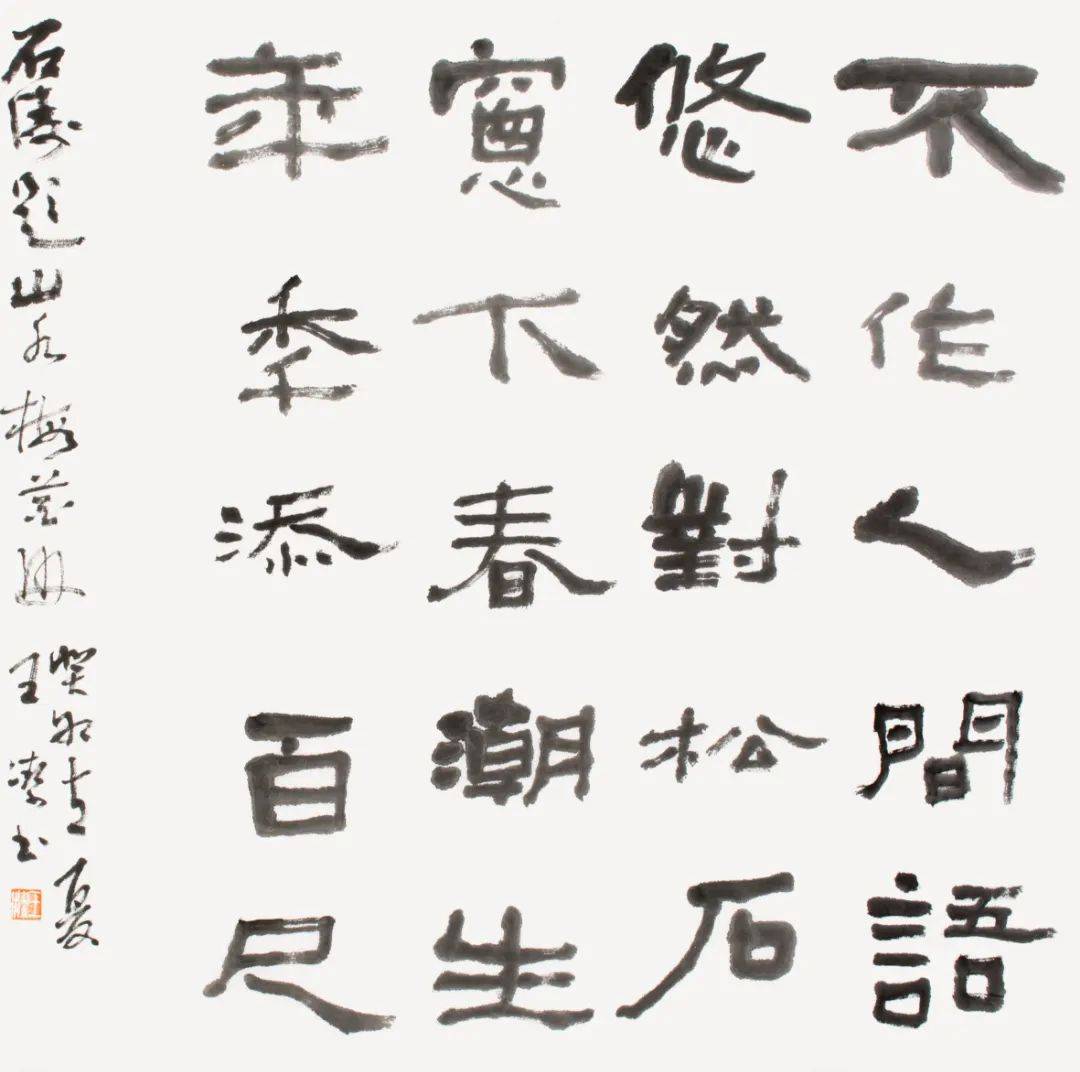 不作人間語
悠然對松石
窻下春潮生
年秊添百尺
石涛題山水梅花册
癸卯立夏
王书